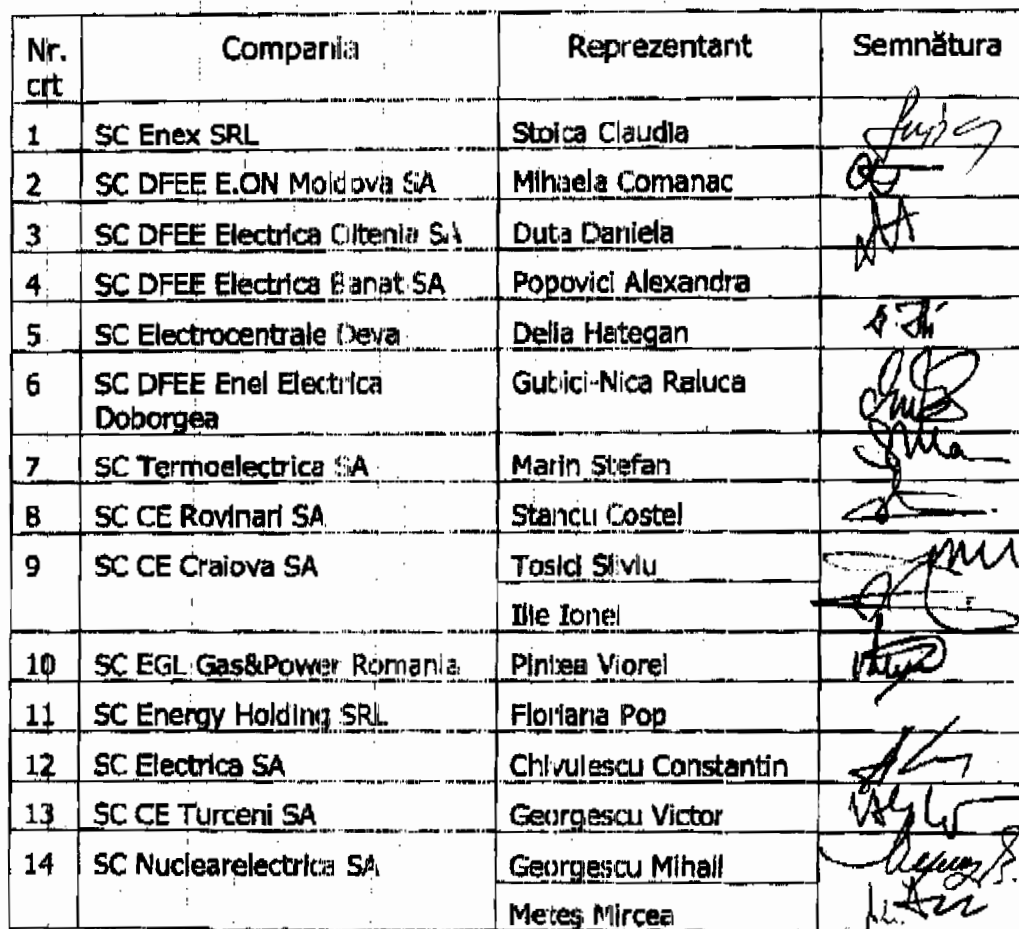 Nr. Compania Reprezentant Semnătura
crt
1 SC Enex SRL Stoica Claudia
2 SC DFEE E.ON Moldova SA Mihaela Comanac
3 SC DFEE Electrica Oltenia SA Duta Daniela
4 SC DFEE Electrica Banat SA Popovici Alexandra
5 SC Electrocentrale Deva Delia Hategan
6 SC DFEE Enel Electrica Gubici-Nica Raluca
Doborgea
7 SC Termoelectrica SA Marin Stefan
8 SC CE Rovinari SA Stancu Costel
9 SC CE Craiova SA Tosici Silviu
Ilie Ionel
10 SC EGL Gas&Power Romania Pintea Viorel
11 SC Energy Holding SRL Floriana Pop
12 SC Electrica SA Chivulescu Constantin
13 SC CE Turceni SA Georgescu Victor
14 SC Nuclearelectrica SA Georgescu Mihail
Meteș Mircea